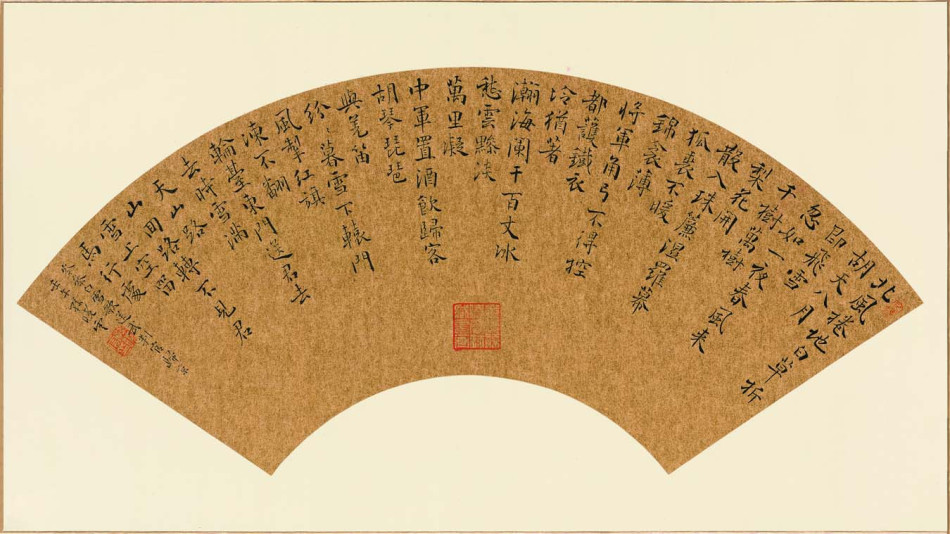 北風捲地白草折
胡天八月
即飛雪
忽如一夜春風来
千樹萬樹
梨花開
散入珠簾濕羅幕
狐裘不暖
錦衾薄
將軍角弓不得控
都護鐵衣
冷猶著
瀚海闌干百丈冰
愁雲黲淡
萬里凝
中軍置酒飲歸客
胡琴琵琶
與羌笛
紛々暮雪下轅門
風掣紅旗
凍不翻
輪臺東門送君去
去時雪滿
天山路
山回路轉不見君
雪上空留
馬行處
岑參白雪歌送武判官歸京